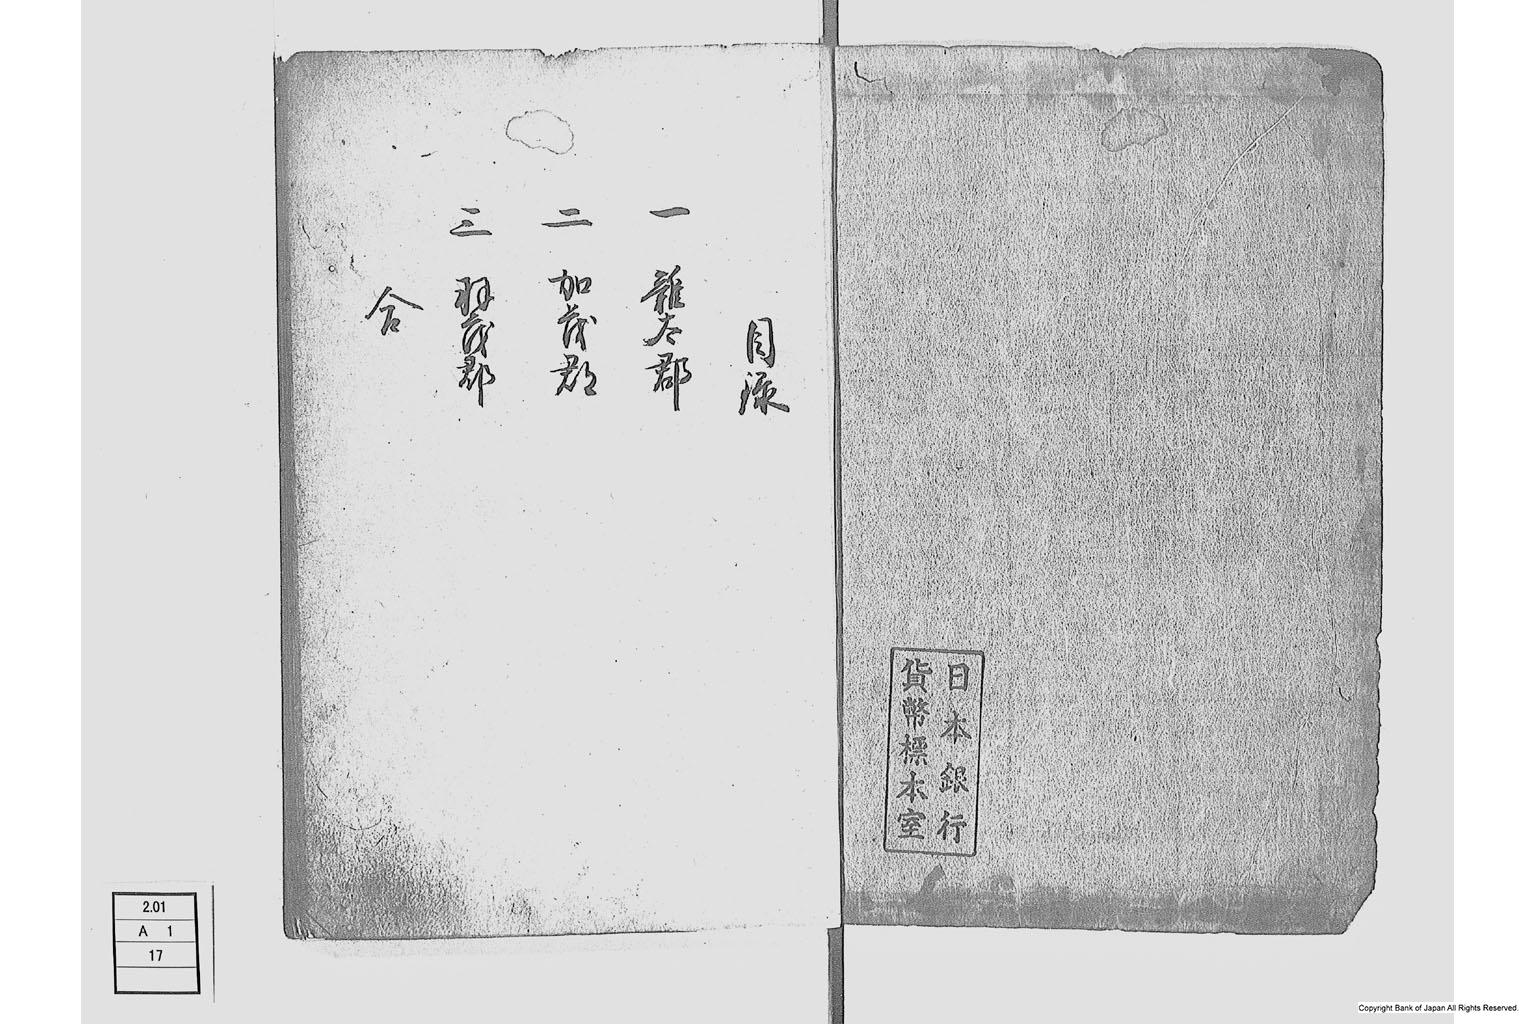 日本銀行
貨幣標本室
目録
一 雜太郡
二 加茂郡
三 羽茂郡
合
2.01
A 1
17
Copyright Bank of Japan All Rights Reserved.